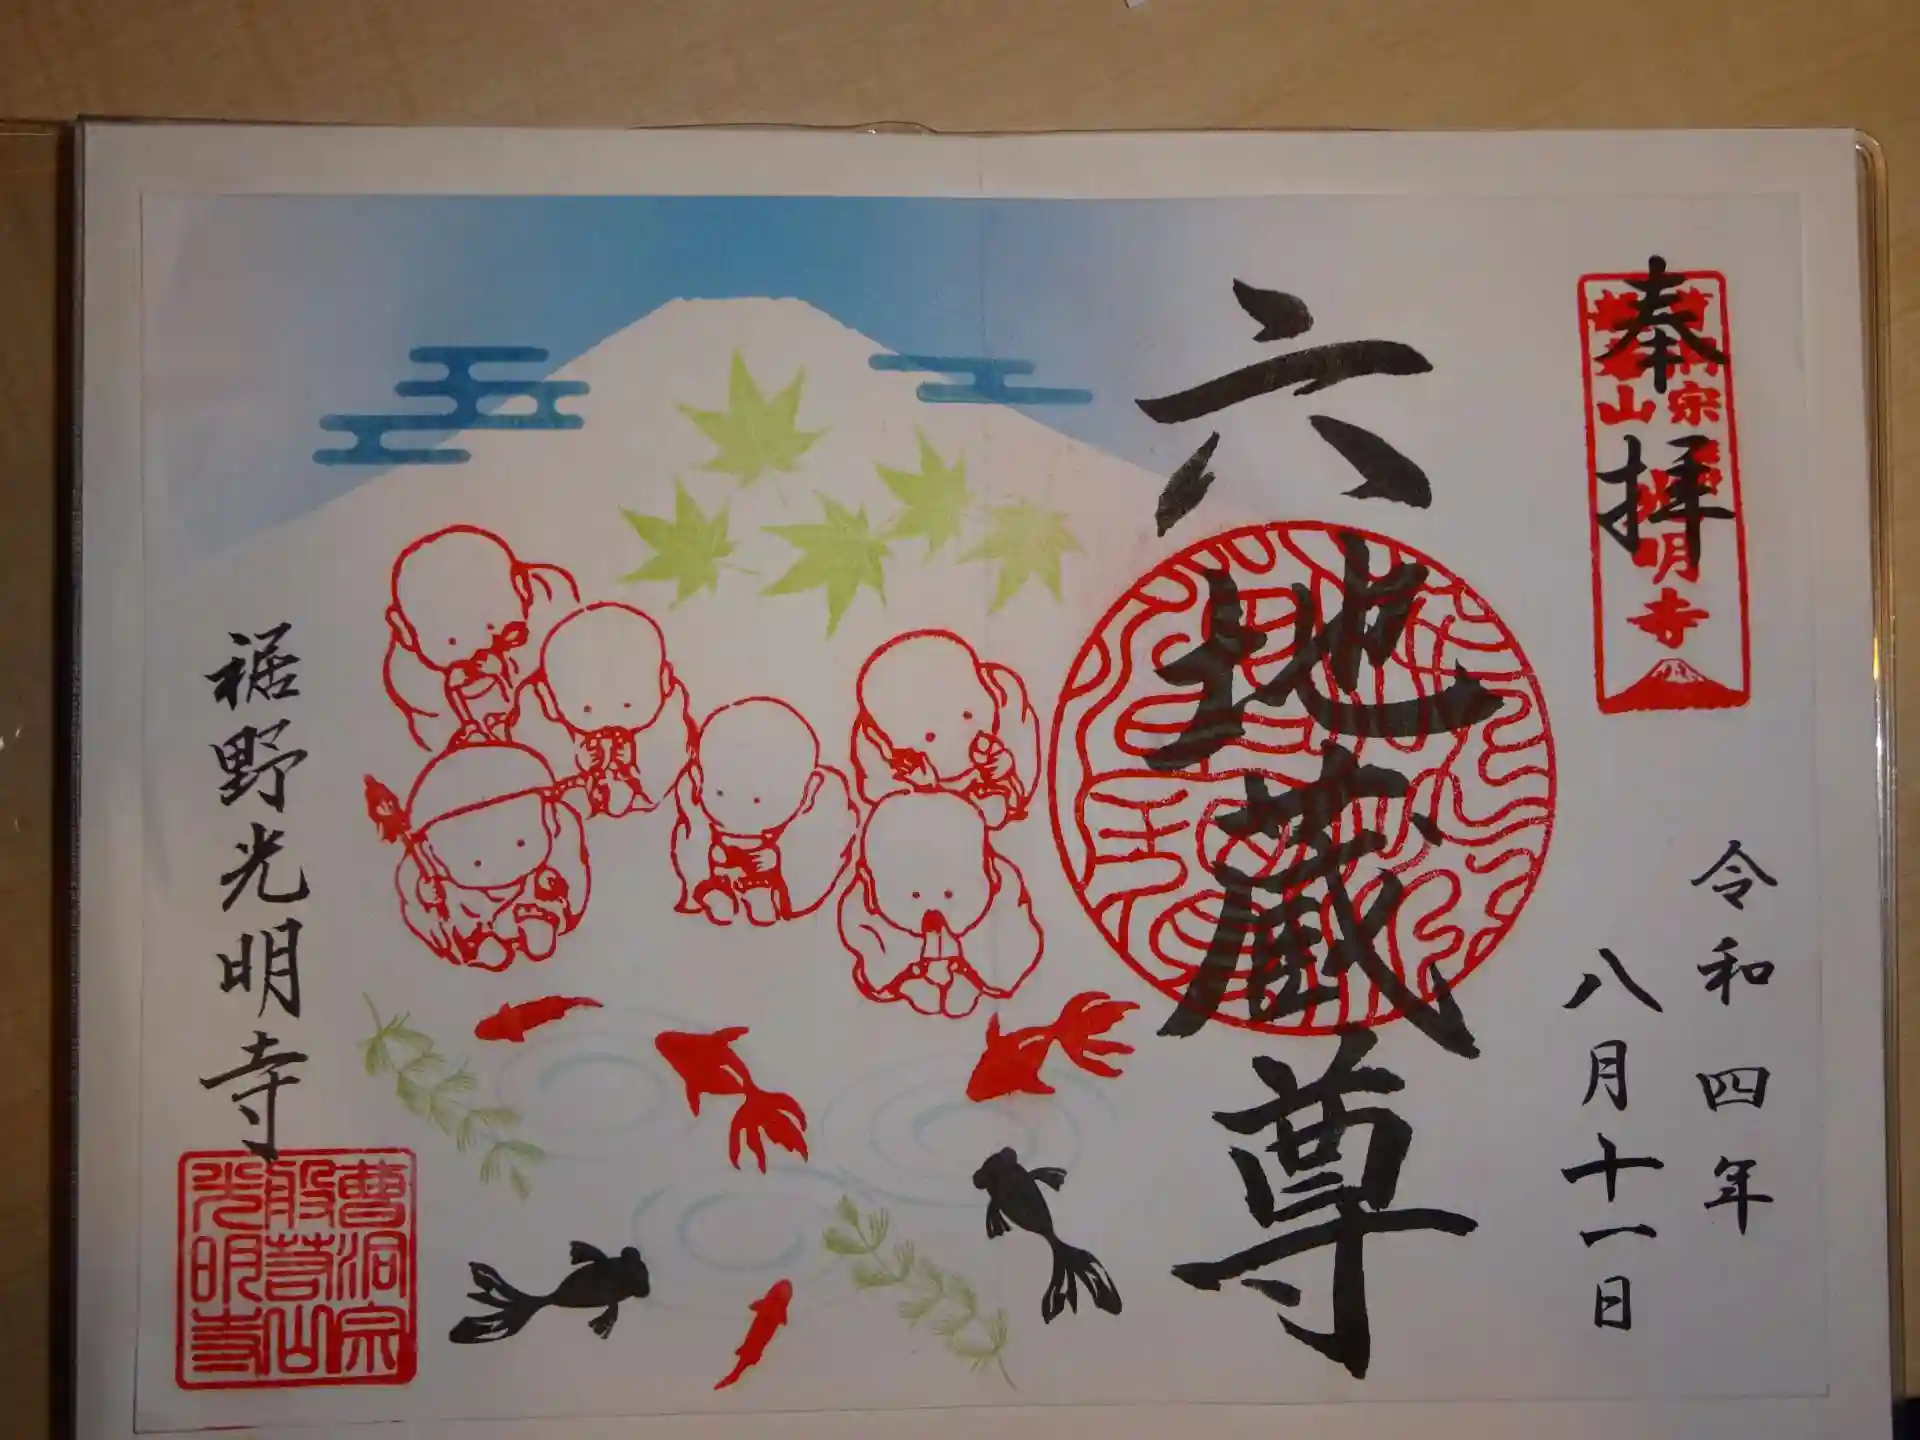 奉拝
令和四年
八月十一日
六地蔵尊
裾野光明寺
曹洞宗
般若山
光明寺